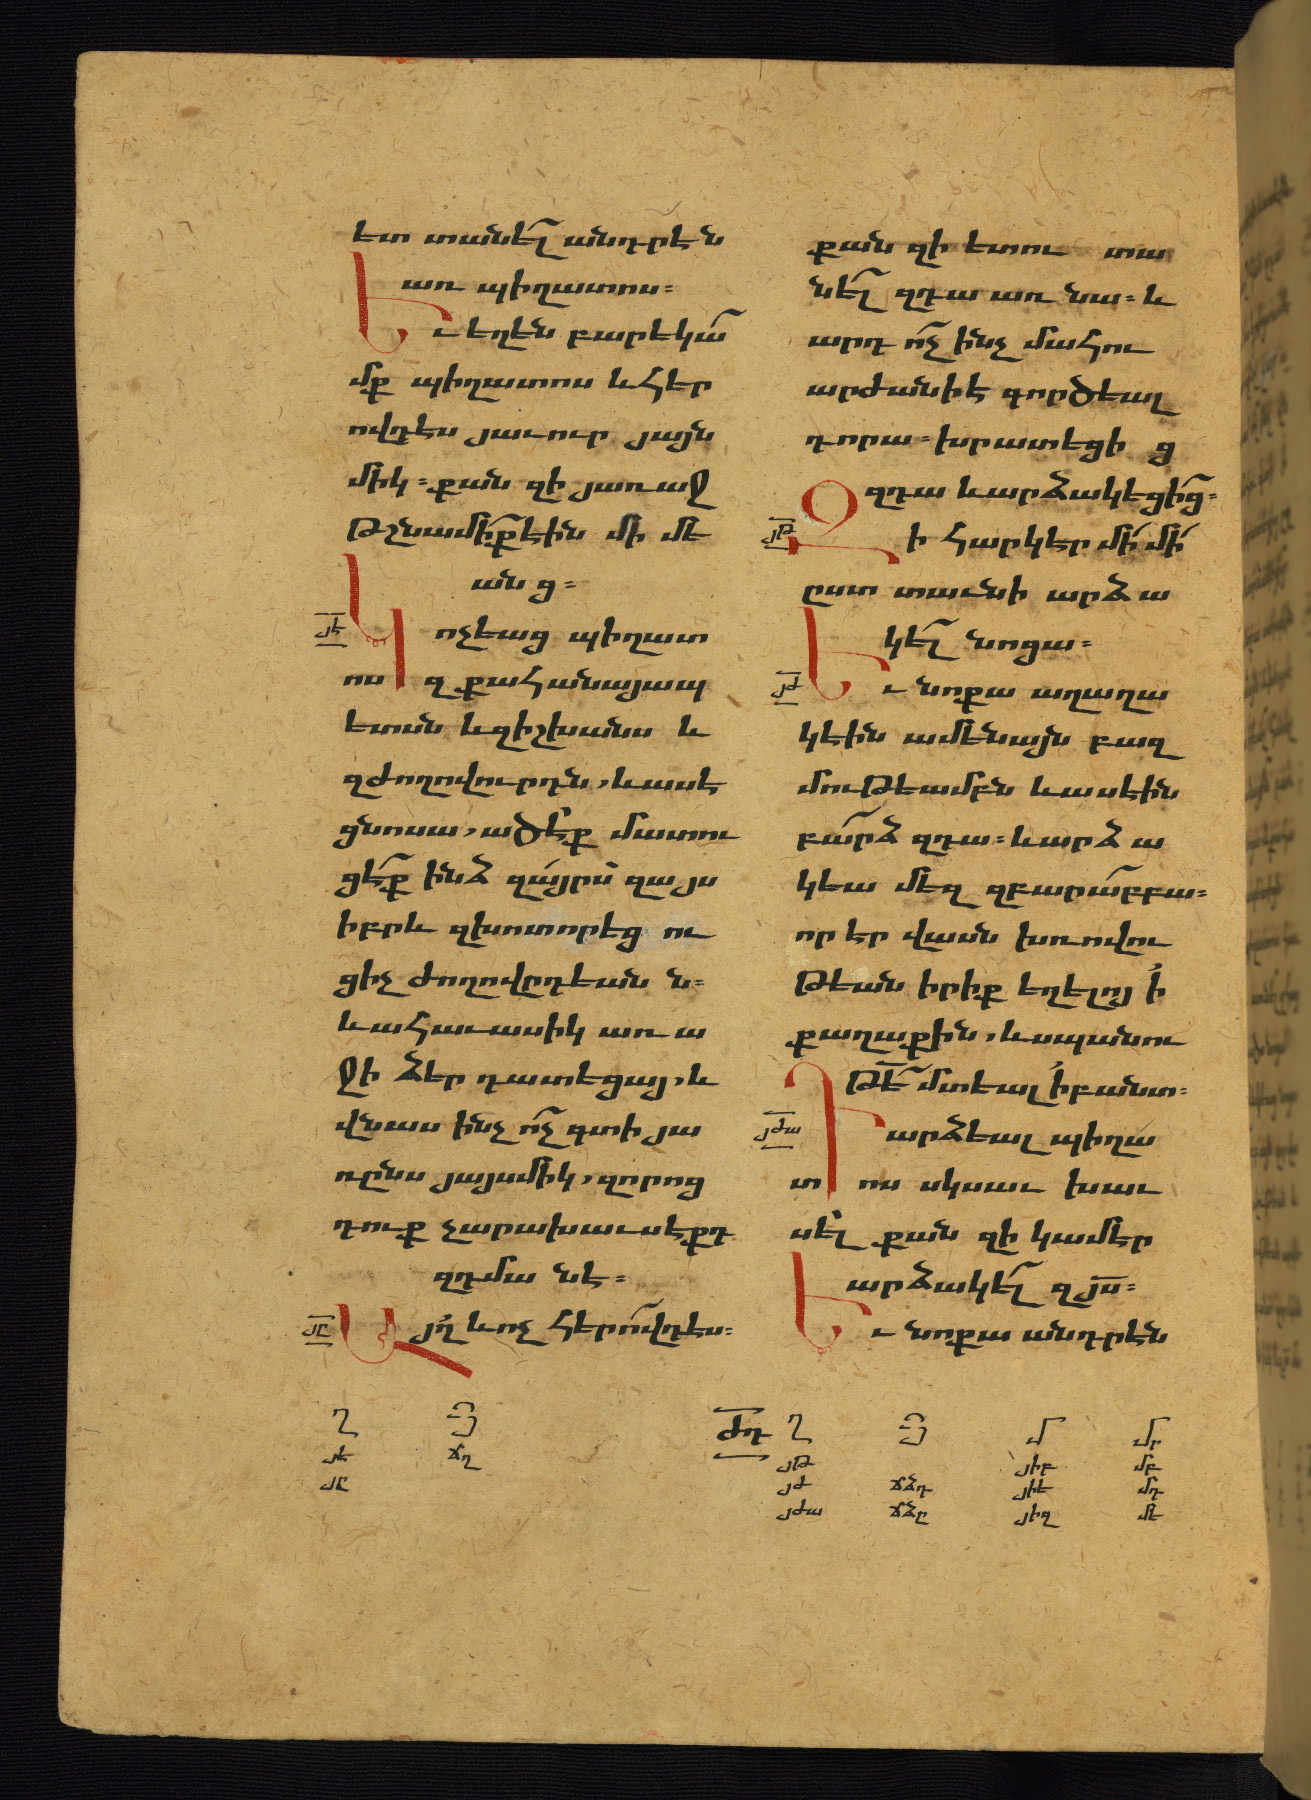 ետ տանե՟լ անդրէն
առ պիղատոս։
Եւ եղեն բարեկա՟
մք պիղատոս և հեր
ովդես յաւուր յայն
միկ։ քան զի յառաջ
թշնամի՟ք էին մի մե
անց։
յէ Կոչեաց պիղատ
ոս զքահանայապ
ետսն և զիշխանս և
զժողովուրդն, և ասէ
ցնոսա, ածե՟ք մատու
ցե՟ք ինձ զայրս զայս
իբրև զխոտորեց ու
ցիչ ժողովըդեան ն։
և ահաւասիկ առ ա
ջի ձեր դատեցայ, և
վնաս ինչ ո՟չ գտի յա
ռընս յայսմիկ, զորոց
դուք չարախաւսէքդ
զդմա նէ։
յը Այղ և ոչ հերո՟վդես։
քան զի ետու տա
նե՟լ զդա առ նա։ և
արդ ո՟չ ինչ մահու
արժանի է գործեալ
դորա։ խրատեցի ց
զդա և արձակեցի՟ց։
յթ Զի հարկէր մի մի
ըստ տաւնի արձա
կե՟լ նոցա։
յժ Եւ նոքա աղաղա
կէին ամենայն բազ
մութեամբն և ասէին
բա՟րձ զդա։ և արձա
կեա մեզ զբարա՟բբա։
որ էր վասն խռովու
թեան իրիք եղելոյ ի
քաղաքին, և սպանու
թե՟ մտեալ ի բանտ։
յժա Դարձեալ պիղա
տոս սկսաւ խաւ
սել քան զի կամէր
արձակե՟լ զյ՟ս։
Եւ նոքա անդրէն
ղ ց ժդ ղ ց մ մր
յէ ճղ յթ յիբ մբ
յը յժ ճձդ յիե մդ
յժա ճձը յիզ մե